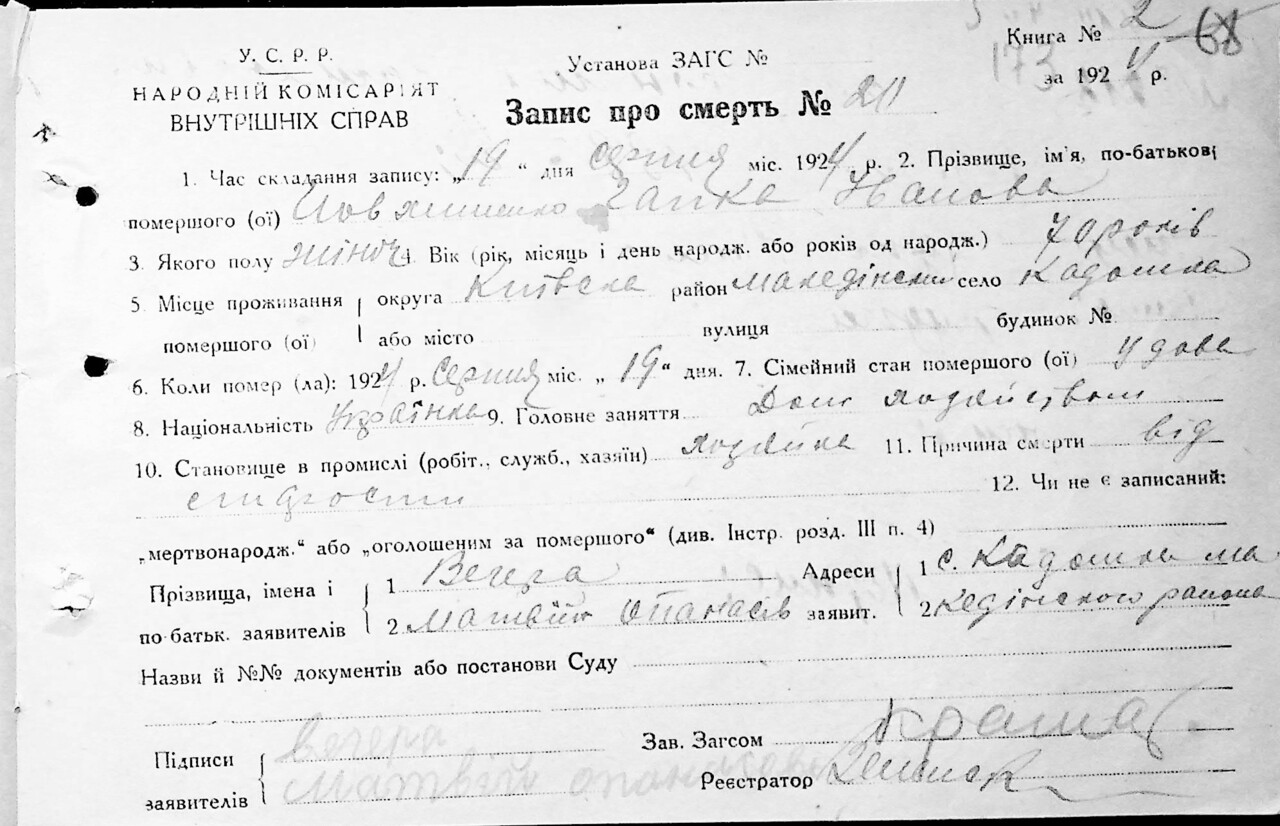 У. С. Р. Р.
НАРОДНІЙ КОМІСАРІЯТ
ВНУТРІШНІХ СПРАВ
Установа ЗАГС №
Книга № 2 68
за 1924 р.
Запис про смерть № 20
1. Час складання запису: „19“ дня серпня міс. 1924 р. 2. Прізвище, ім'я, по-батькові
помершого (ої) Гапка Иванова
3. Якого полу жіноч 4. Вік (рік, місяць і день народж. або років од народж.) 70 років
5. Місце проживання помершого (ої) округа Київска район Македінский село Кадомка
або місто вулиця будинок №
6. Коли помер (ла): 1924 р. серпня міс. „19“ дня. 7. Сімейний стан помершого (ої) удова
8. Національність Українка 9. Головне заняття Дом хозяйством
10. Становище в промислі (робіт., служб., хазяїн) хозяйка 11. Причина смерти від
старости 12. Чи не є записаний:
„мертвонародж.“ або „оголошеним за помершого“ (див. Інстр. розд. III п. 4)
Прізвища, імена і по-батьк. заявителів 1 Вечера Адреси заявит. 1 с. Кадомка Ма
2 Матвій Опанасів 2 кедінского района
Назви й №№ документів або постанови Суду
Підписи заявителів Вечера
Матвій
Зав. Загсом
Реєстратор